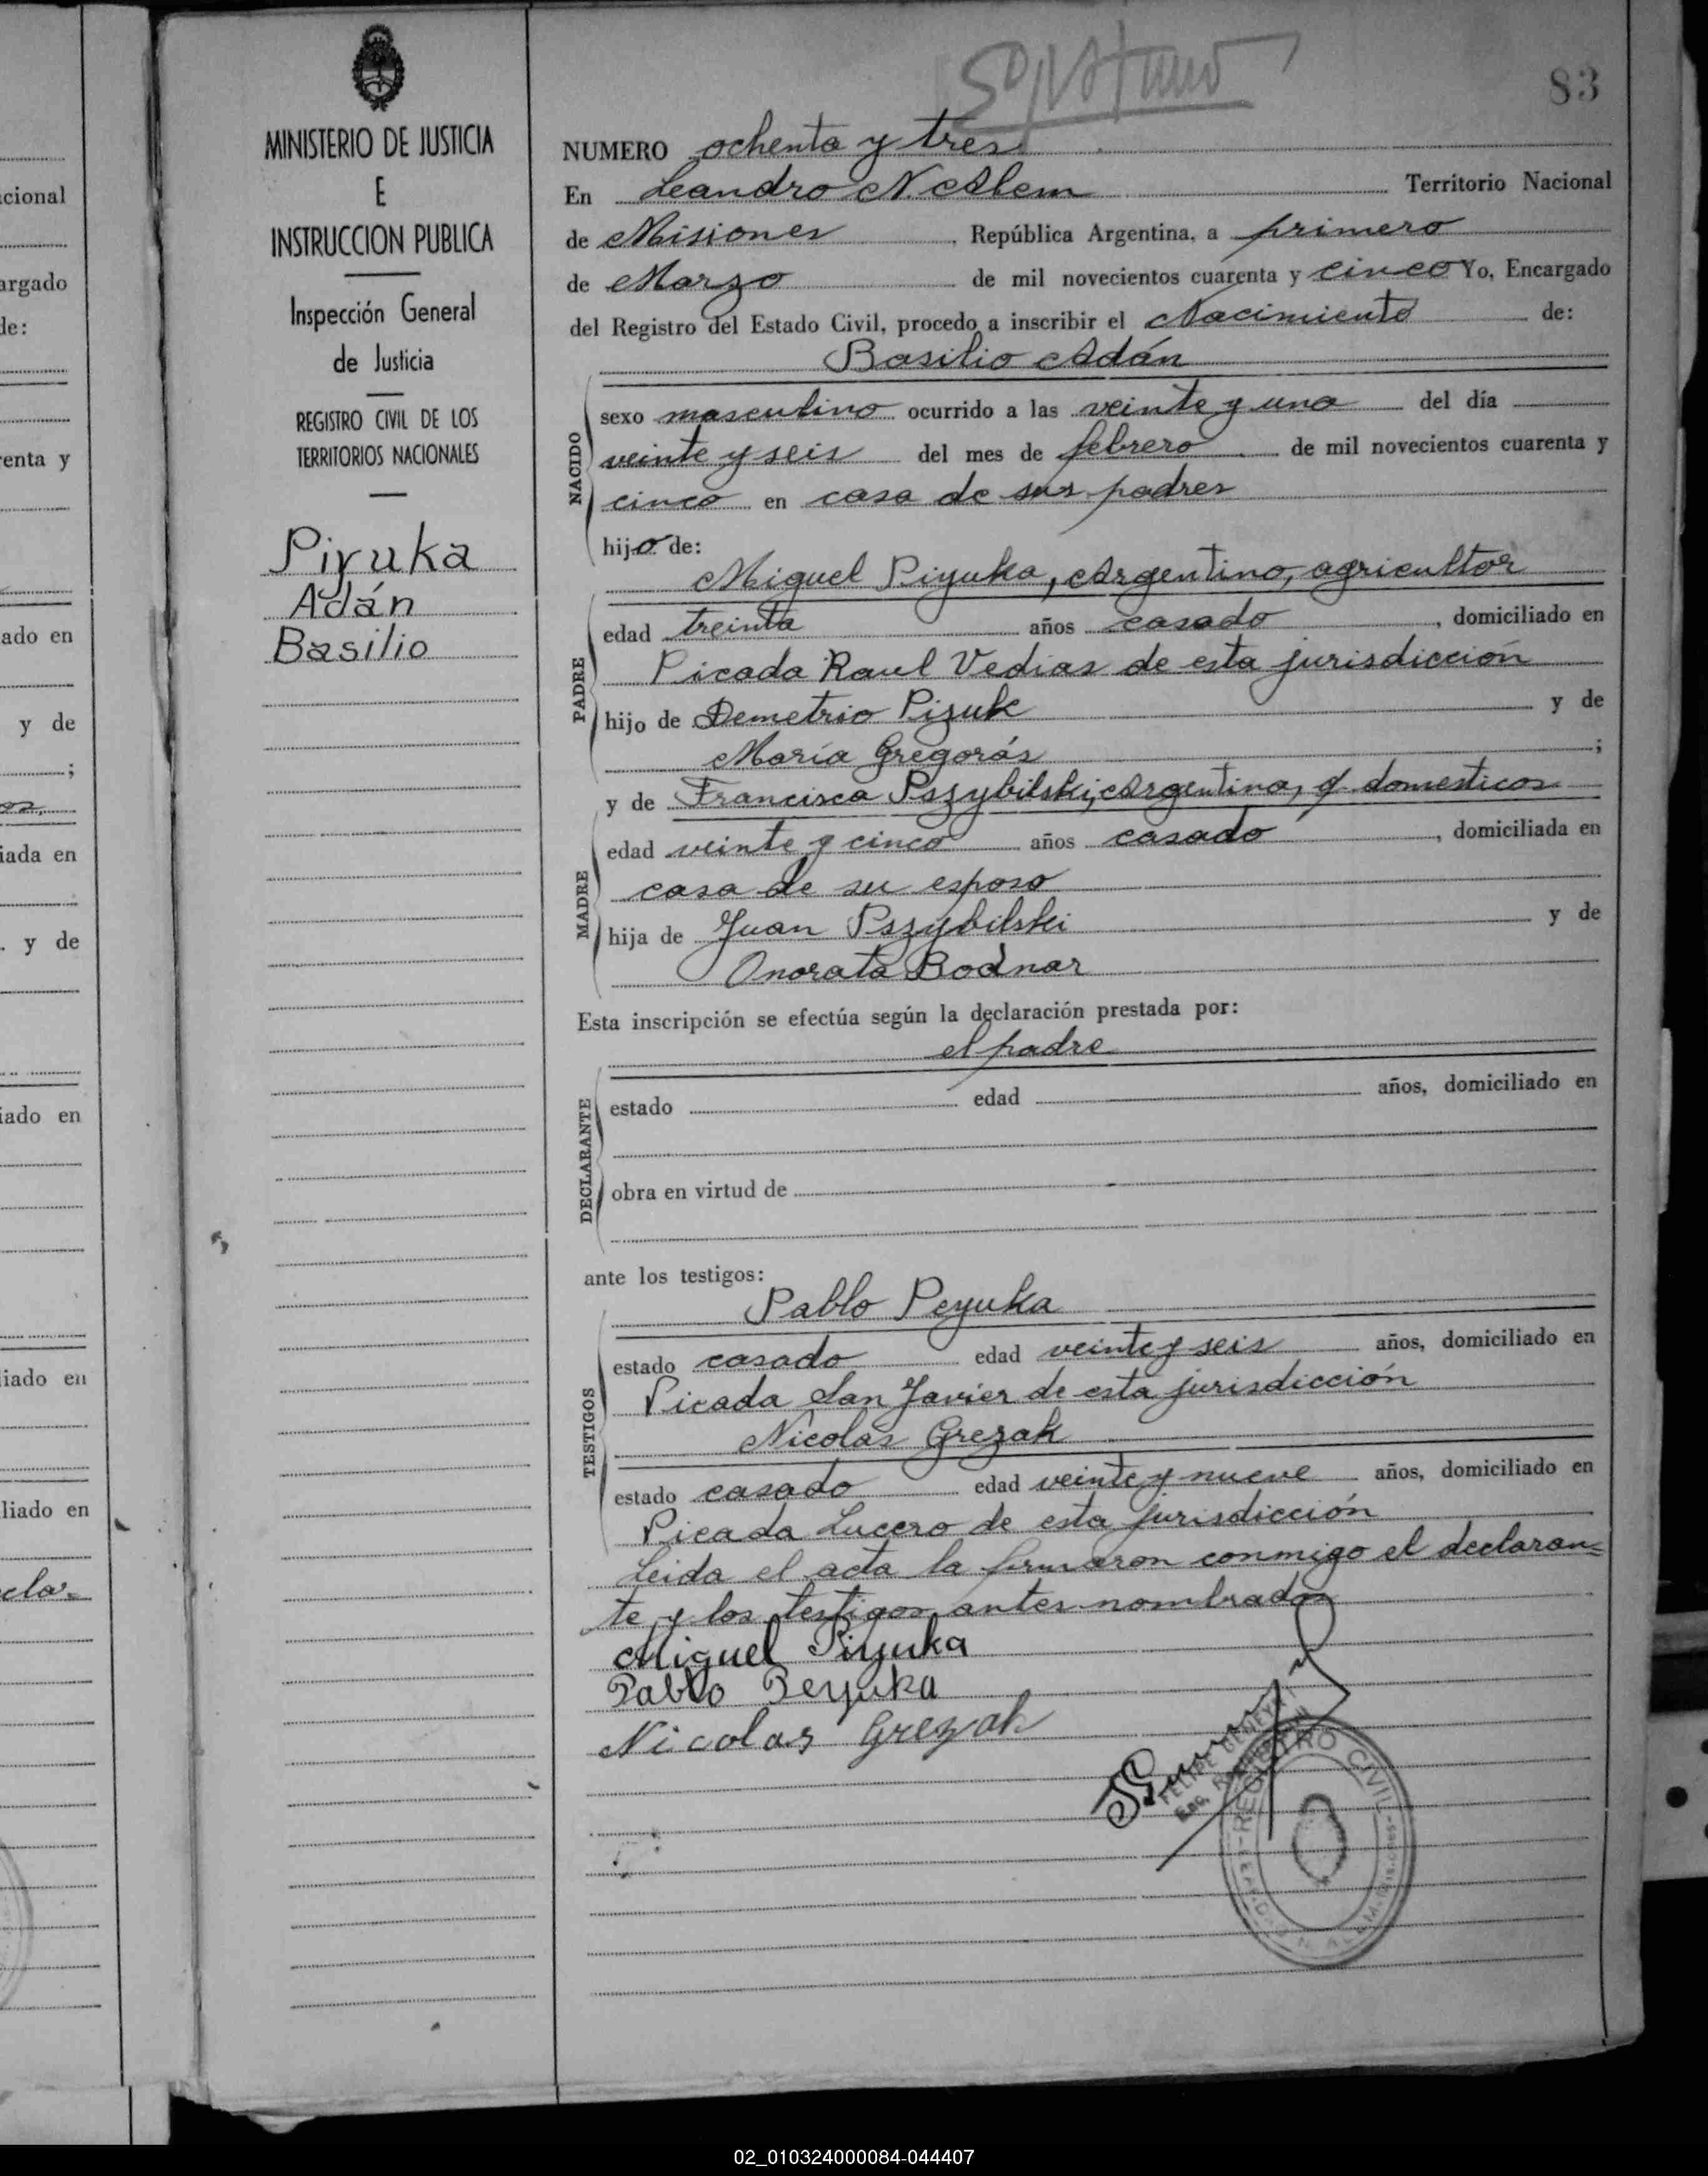 cional
argado
de:
enta y
ado en
y de
;
os,
iada en
. y de
iado en
liado en
liado en
cla=
MINISTERIO DE JUSTICIA
E
INSTRUCCION PUBLICA
Inspección General
de Justicia
REGISTRO CIVIL DE LOS
TERRITORIOS NACIONALES
Piyuka
Adán
Basilio
83
NUMERO ochenta y tres
En Leandro N. Alem Territorio Nacional
de Misiones, República Argentina, a primero
de Marzo de mil novecientos cuarenta y cinco Yo, Encargado
del Registro del Estado Civil, procedo a inscribir el Nacimiento de:
Basilio Adán
NACIDO
sexo masculino ocurrido a las veinte y una del día
veinte y seis del mes de febrero de mil novecientos cuarenta y
cinco en casa de sus padres
hijo de:
Miguel Piyuka, Argentino, agricultor
PADRE
edad treinta años casado, domiciliado en
Picada Raul Vedias de esta jurisdicción
hijo de Demetrio Pizuk y de
María Gregorás;
y de Francisca Pszybilski, Argentina, q. domesticos
MADRE
edad veinte y cinco años casado, domiciliada en
casa de su esposo
hija de Juan Pszybilski y de
Onorata Bodnar
Esta inscripción se efectúa según la declaración prestada por:
el padre
DECLARANTE
estado edad años, domiciliado en
obra en virtud de
ante los testigos:
Pablo Peyuka
TESTIGOS
estado casado edad veinte y seis años, domiciliado en
Picada San Javier de esta jurisdicción
Nicolás Grezak
estado casado edad veinte y nueve años, domiciliado en
Picada Lucero de esta jurisdicción
Leida el acta la firmaron conmigo el declaran=
te y los testigos antes nombrados
Miguel Piyuka
Pablo Peyuka
Nicolas Grezak
FELIPE
REGISTRO CIVIL
02_010324000084-044407